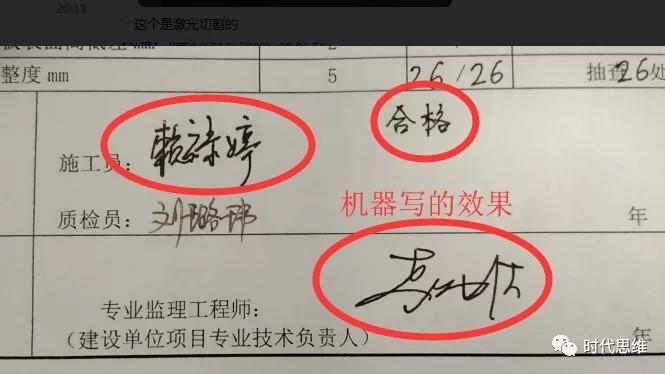 20:11
这个是激光切割的
整度mm 5 26/26 抽查26处
合格
施工员：赖禄婷
机器写的效果
质检员：刘璐玮 年
专业监理工程师：
（建设单位项目专业技术负责人） 年
时代思维